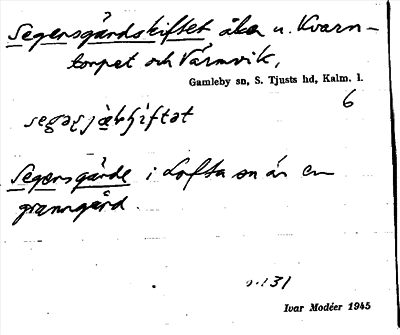 Segersgärdskiftet åker u. Kvarn-
torpet och Värmvik,
Gamleby sn, S. Tjusts hd, Kalm. l.
6
Segersgärde i Lofta sn är en
granngård.
131
Ivar Modéer 1945